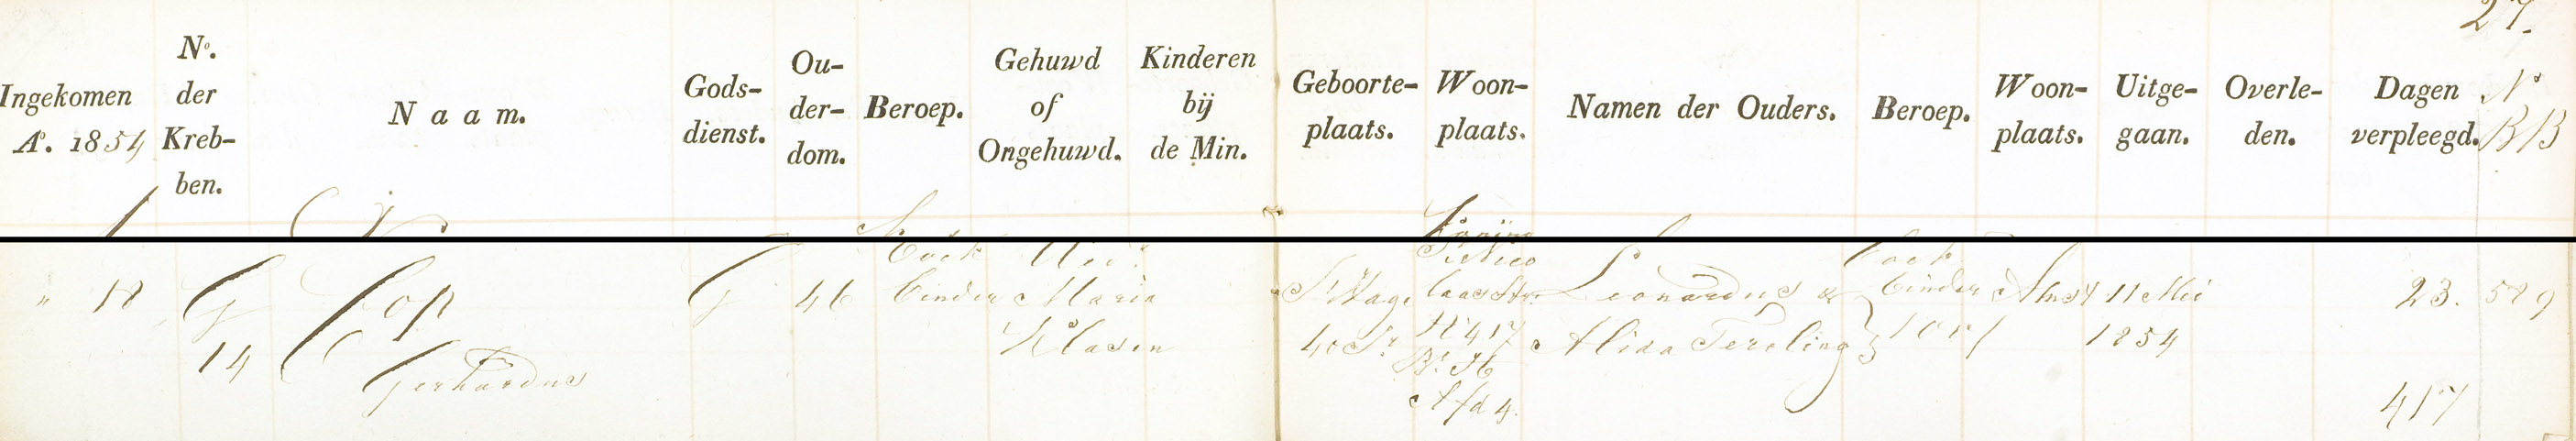 27.
Ingekomen Ao. 1854
No. der Krebben.
Naam.
Godsdienst.
Ouderdom.
Beroep.
Gehuwd of Ongehuwd.
Kinderen bij de Min.
Geboorteplaats.
Woonplaats.
Namen der Ouders.
Beroep.
Woonplaats.
Uitgegaan.
Overleden.
Dagen verpleegd.
N BB
" 18
G 14
Cop Gerhardus
G
46
Boek binder
Maria Klasen
S'Hage
40 Jr
St Nico laas Str. No 417 Bt. 36 Afd 4.
Leonardus & Alida Terling
boek binder
Amst
11 Mei 1854
23.
529
417